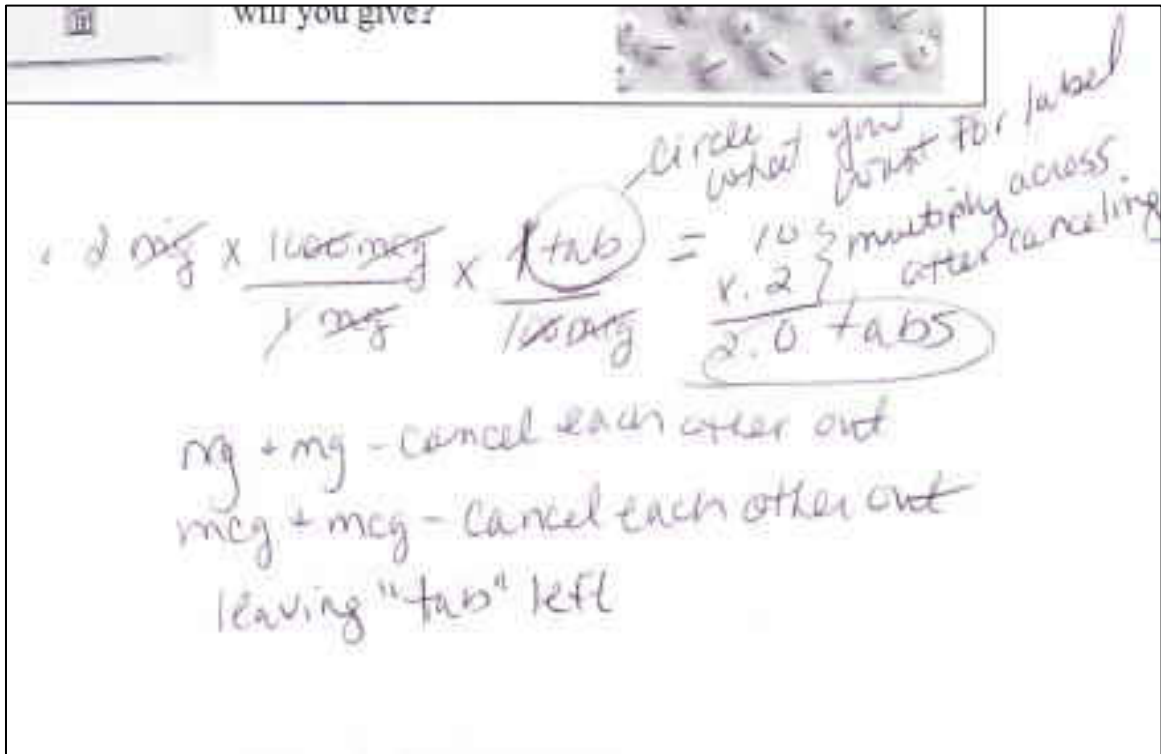 will you give?
circle
what you
want for label
.2 mg x 1000 mcg x 1 tab = 10 } multiply across
1 mg 100 mcg x.2 } after canceling
2.0 tabs
mg + mg - cancel each other out
mcg + mcg - cancel each other out
leaving "tab" left